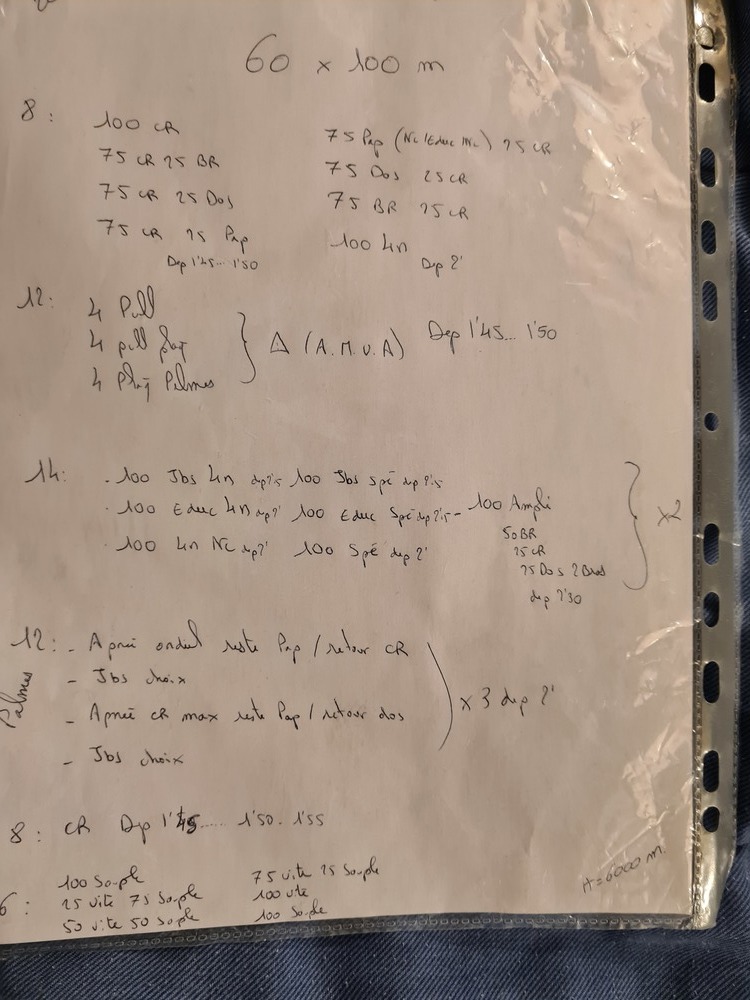 60 x 100 m
8 :
100 CR
75 CR 25 BR
75 CR 25 Dos
75 CR 25 Pap
Dep 1'45... 1'50
75 Pap (Nc/Educ/Nc) 25 CR
75 Dos 25 CR
75 BR 25 CR
100 4n
Dep 2'
12:
4 Pull
4 pull plaq
4 Plaq Palmes
} Δ (A.M.V.A) Dep 1'45... 1'50
14:
- 100 Jbs 4n dep 2'15 100 Jbs Spé dep 2'15
- 100 Educ 4n dep 2' 100 Educ Spé dep 2'15 - 100 Ampli
50 BR
25 CR
25 Dos 2 Bras
dep 2'30
- 100 4n Nc dep 2' 100 Spé dep 2'
} x2
Palmes
12: - Apnée ondul reste Pap / retour CR
- Jbs choix
- Apnée CR max reste Pap / retour dos
- Jbs choix
) x 3 dep 2'
8 : CR Dep 1'45..... 1'50. 1'55
6 :
100 Souple
25 vite 75 Souple
50 vite 50 Souple
75 vite 25 Souple
100 vite
100 Souple
= 6000 m.